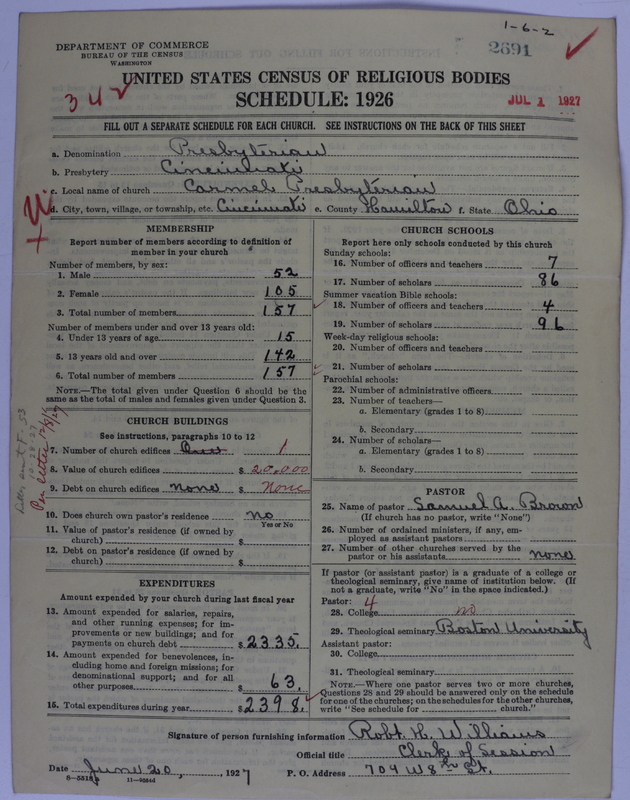 1-6-2
DEPARTMENT OF COMMERCE
BUREAU OF THE CENSUS
WASHINGTON
2691
UNITED STATES CENSUS OF RELIGIOUS BODIES
342
SCHEDULE: 1926
JUL 1 1927
FILL OUT A SEPARATE SCHEDULE FOR EACH CHURCH. SEE INSTRUCTIONS ON THE BACK OF THIS SHEET
a. Denomination Presbyterian
b. Presbytery Cincinnati
c. Local name of church Carmel Presbyterian
d. City, town, village, or township, etc. Cincinnati e. County Hamilton f. State Ohio
MEMBERSHIP
Report number of members according to definition of
member in your church
Number of members, by sex:
1. Male 52
2. Female 105
3. Total number of members 157
Number of members under and over 13 years old:
4. Under 13 years of age 15
5. 13 years old and over 142
6. Total number of members 157
NOTE.—The total given under Question 6 should be the
same as the total of males and females given under Question 3.
CHURCH BUILDINGS
See instructions, paragraphs 10 to 12
7. Number of church edifices One 1
8. Value of church edifices $ 20,000
9. Debt on church edifices none $ None
10. Does church own pastor's residence no
Yes or No
11. Value of pastor's residence (if owned by
church) $
12. Debt on pastor's residence (if owned by
church) $
EXPENDITURES
Amount expended by your church during last fiscal year
13. Amount expended for salaries, repairs,
and other running expenses; for im-
provements or new buildings; and for
payments on church debt $ 2335.
14. Amount expended for benevolences, in-
cluding home and foreign missions; for
denominational support; and for all
other purposes $ 63.
15. Total expenditures during year $ 2398.
CHURCH SCHOOLS
Report here only schools conducted by this church
Sunday schools:
16. Number of officers and teachers 7
17. Number of scholars 86
Summer vacation Bible schools:
18. Number of officers and teachers 4
19. Number of scholars 96
Week-day religious schools:
20. Number of officers and teachers
21. Number of scholars
Parochial schools:
22. Number of administrative officers
23. Number of teachers—
a. Elementary (grades 1 to 8)
b. Secondary
24. Number of scholars—
a. Elementary (grades 1 to 8)
b. Secondary
PASTOR
25. Name of pastor Samuel A. Brown
(If church has no pastor, write "None")
26. Number of ordained ministers, if any, em-
ployed as assistant pastors
27. Number of other churches served by the
pastor or his assistants none
If pastor (or assistant pastor) is a graduate of a college or
theological seminary, give name of institution below. (If
not a graduate, write "No" in the space indicated.)
Pastor: 4
28. College no
29. Theological seminary Boston University
Assistant pastor:
30. College
31. Theological seminary
NOTE.—Where one pastor serves two or more churches,
Questions 28 and 29 should be answered only on the schedule
for one of the churches; on the schedules for the other churches,
write "See schedule for church."
Signature of person furnishing information Robt. H. Williams
Official title Clerk of Session
Date June 20, 1927 P. O. Address 704 W 8th St.